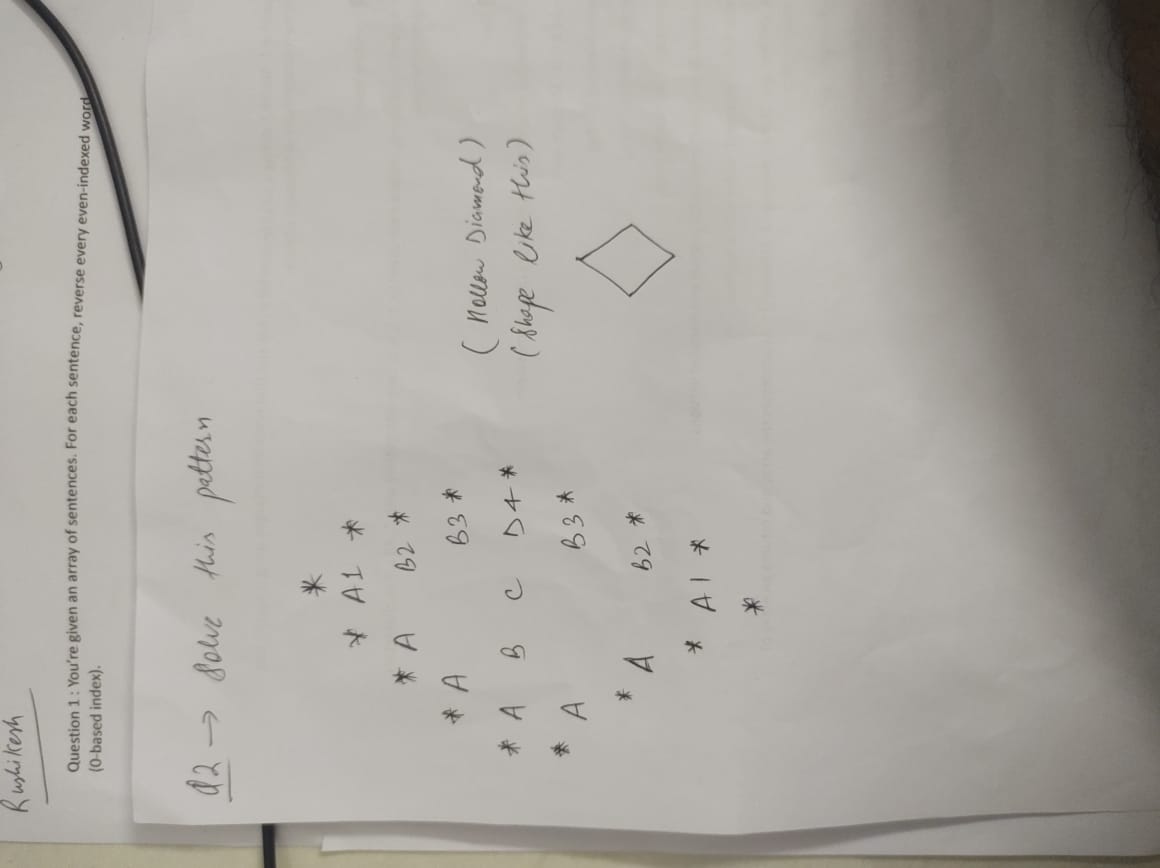 Rushikesh
Question 1 : You're given an array of sentences. For each sentence, reverse every even-indexed word
(0-based index).
Q2 → Solve this pattern
*
* A1 *
* A B2 *
* A B3 *
* A B C D4 *
* A B3 *
* A B2 *
* A1 *
*
(Hollow Diamond)
(Shape like this)